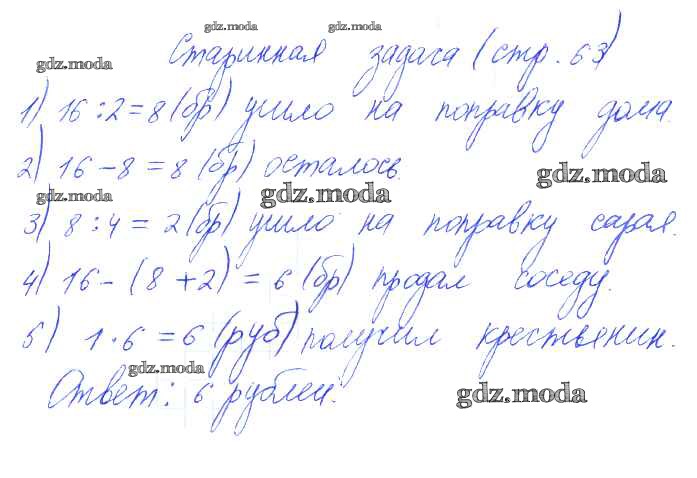 gdz.moda gdz.moda
Старинная задача (стр. 63)
gdz.moda
1) 16 : 2 = 8 (бр) ушло на поправку дома.
2) 16 - 8 = 8 (бр) осталось.
gdz.moda
gdz.moda gdz.moda
3) 8 : 4 = 2 (бр) ушло на поправку сарая.
4) 16 - (8 + 2) = 6 (бр) продал соседу.
5) 1 · 6 = 6 (руб) получил крестьянин.
gdz.moda
Ответ: 6 рублей.
gdz.moda